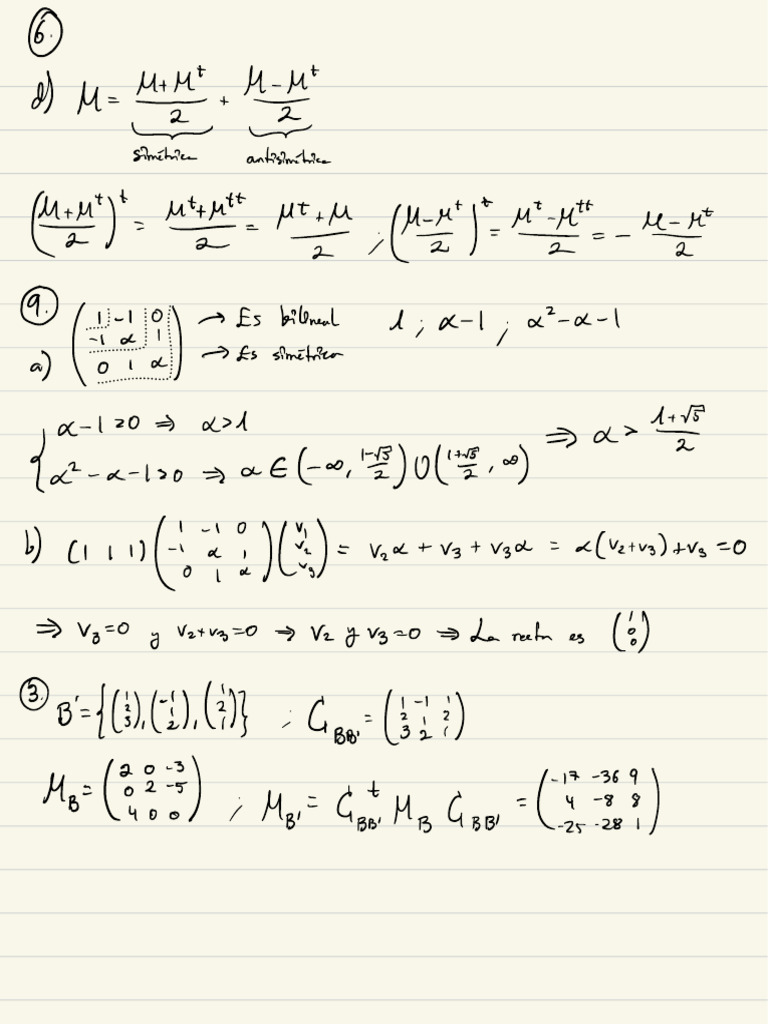 6.
d) M = (M+M^t)/2 + (M-M^t)/2
simétrica antisimétrica
((M+M^t)/2)^t = (M^t+M^tt)/2 = (M^t+M)/2 ; ((M-M^t)/2)^t = (M^t-M^tt)/2 = - (M-M^t)/2
9.
a) (1 -1 0 / -1 α 1 / 0 1 α) → Es bilineal 1 ; α-1 ; α²-α-1
→ Es simétrica
{ α-1>0 ⇒ α>1
α²-α-1>0 ⇒ α ∈ (-∞, (1-√5)/2) ∪ ((1+√5)/2, ∞) ⇒ α > (1+√5)/2
b) (1 1 1) (1 -1 0 / -1 α 1 / 0 1 α) (v₁ / v₂ / v₃) = v₂α + v₃ + v₃α = α(v₂+v₃)+v₃ = 0
⇒ v₃=0 y v₂+v₃=0 → v₂ y v₃=0 ⇒ La recta es (1 / 0 / 0)
3.
B' = {(1 / 2 / 3), (-1 / 1 / 2), (1 / 2 / 1)} ; C_BB' = (1 -1 1 / 2 1 2 / 3 2 1)
M_B = (2 0 -3 / 0 2 -5 / 4 0 0) ; M_B' = C^t_BB' M_B C_BB' = (-17 -36 9 / 4 -8 8 / -25 -28 1)